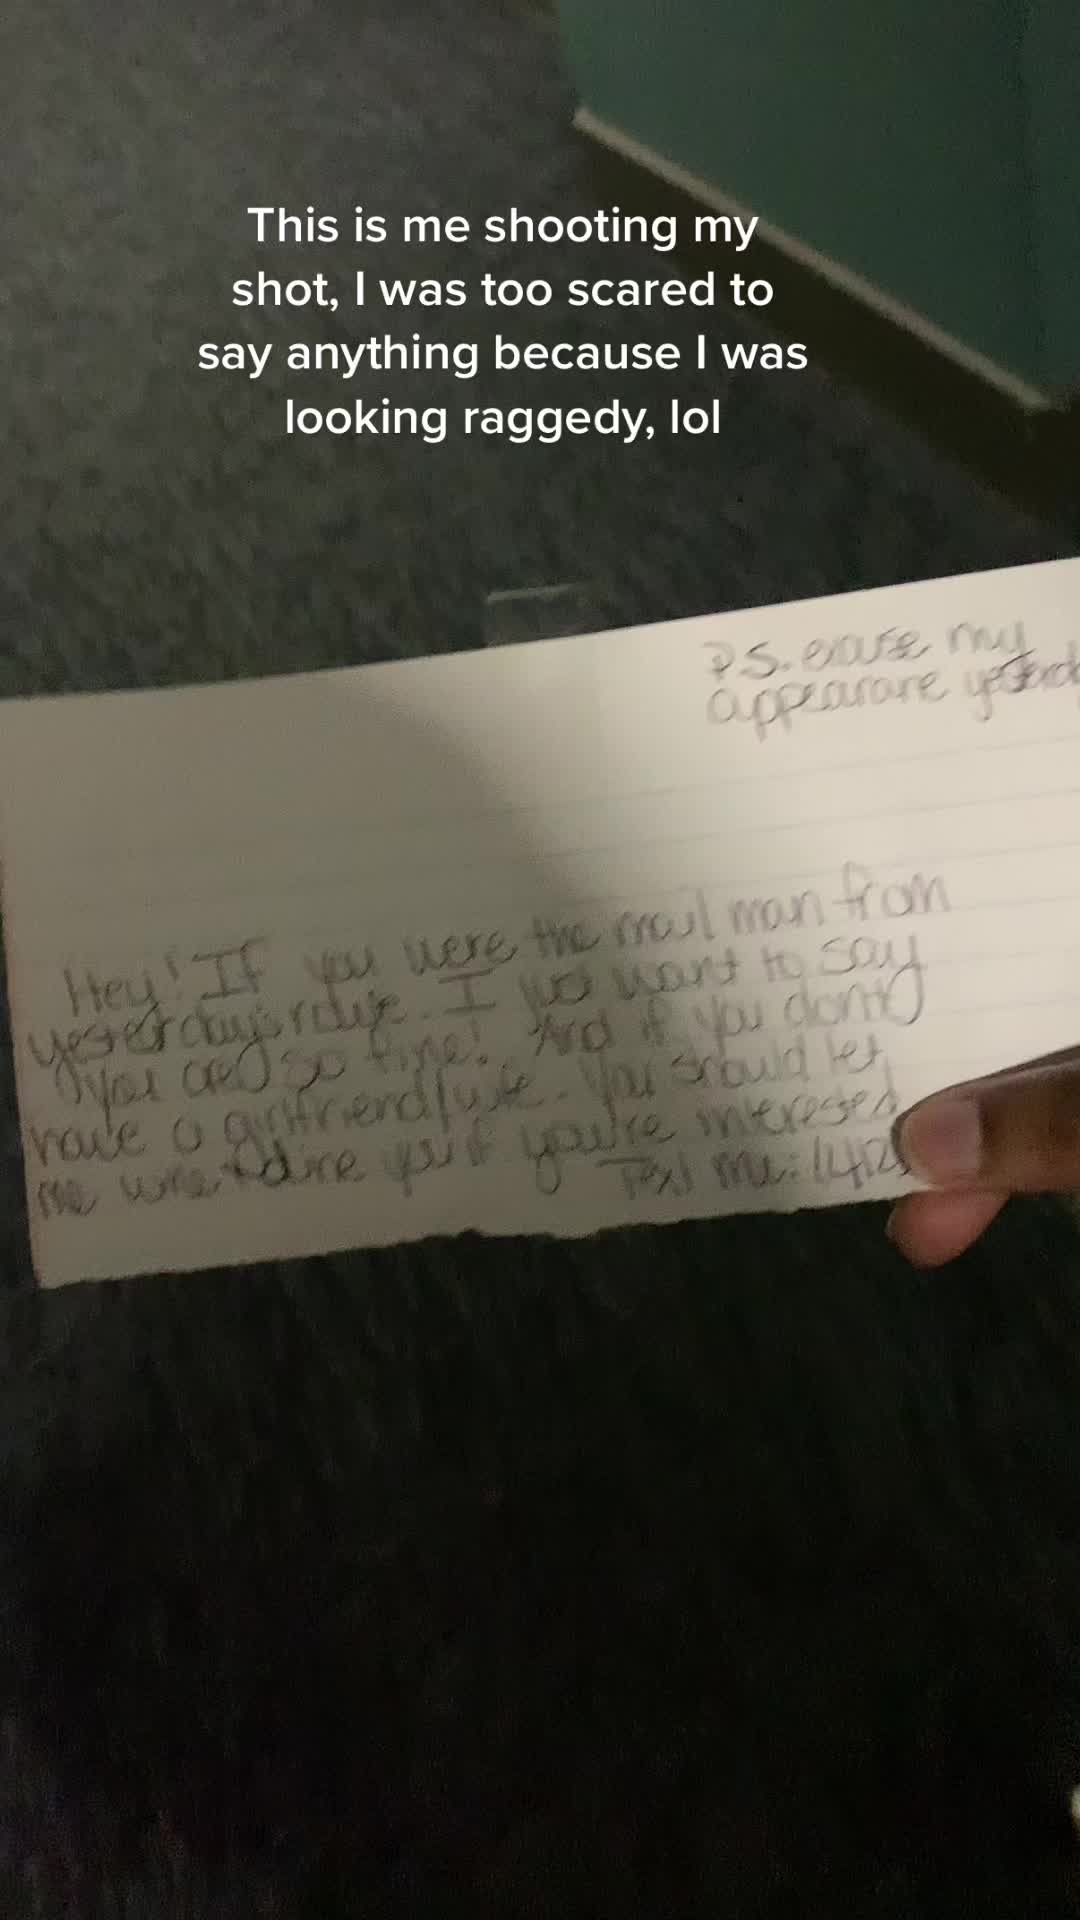 This is me shooting my
shot, I was too scared to
say anything because I was
looking raggedy, lol
P.S. excuse my
appearance
Hey! If you were the mail man from
yesterday's I just want to say
you are so fine! And if you don't
have a girlfriend/wife. You should let
me you if you're interested
Text me: (412